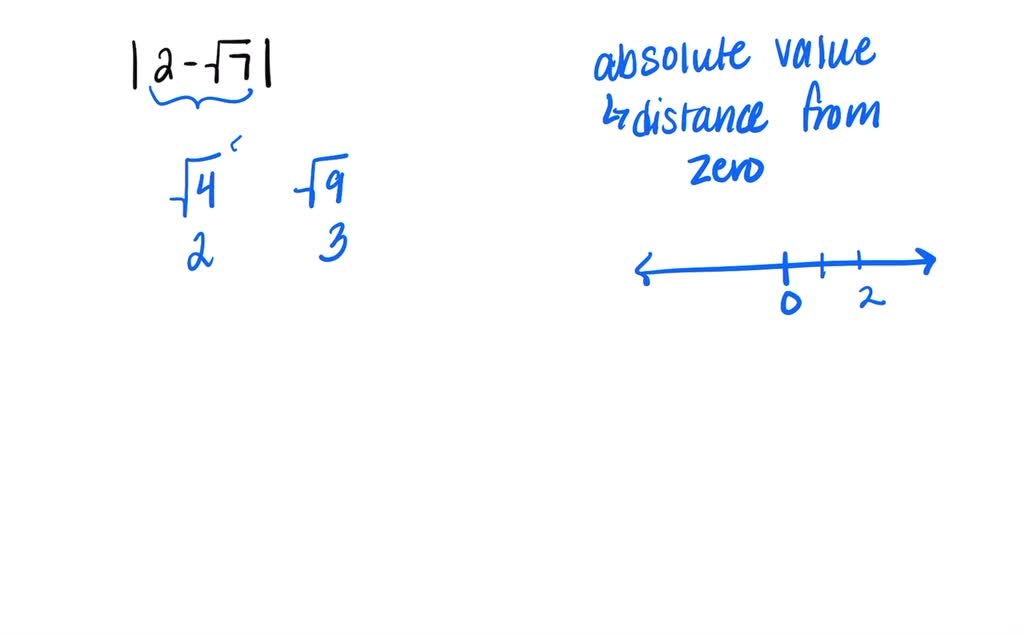 |2-√7|
absolute value
↳distance from
zero
√4 √9
2 3
0 2